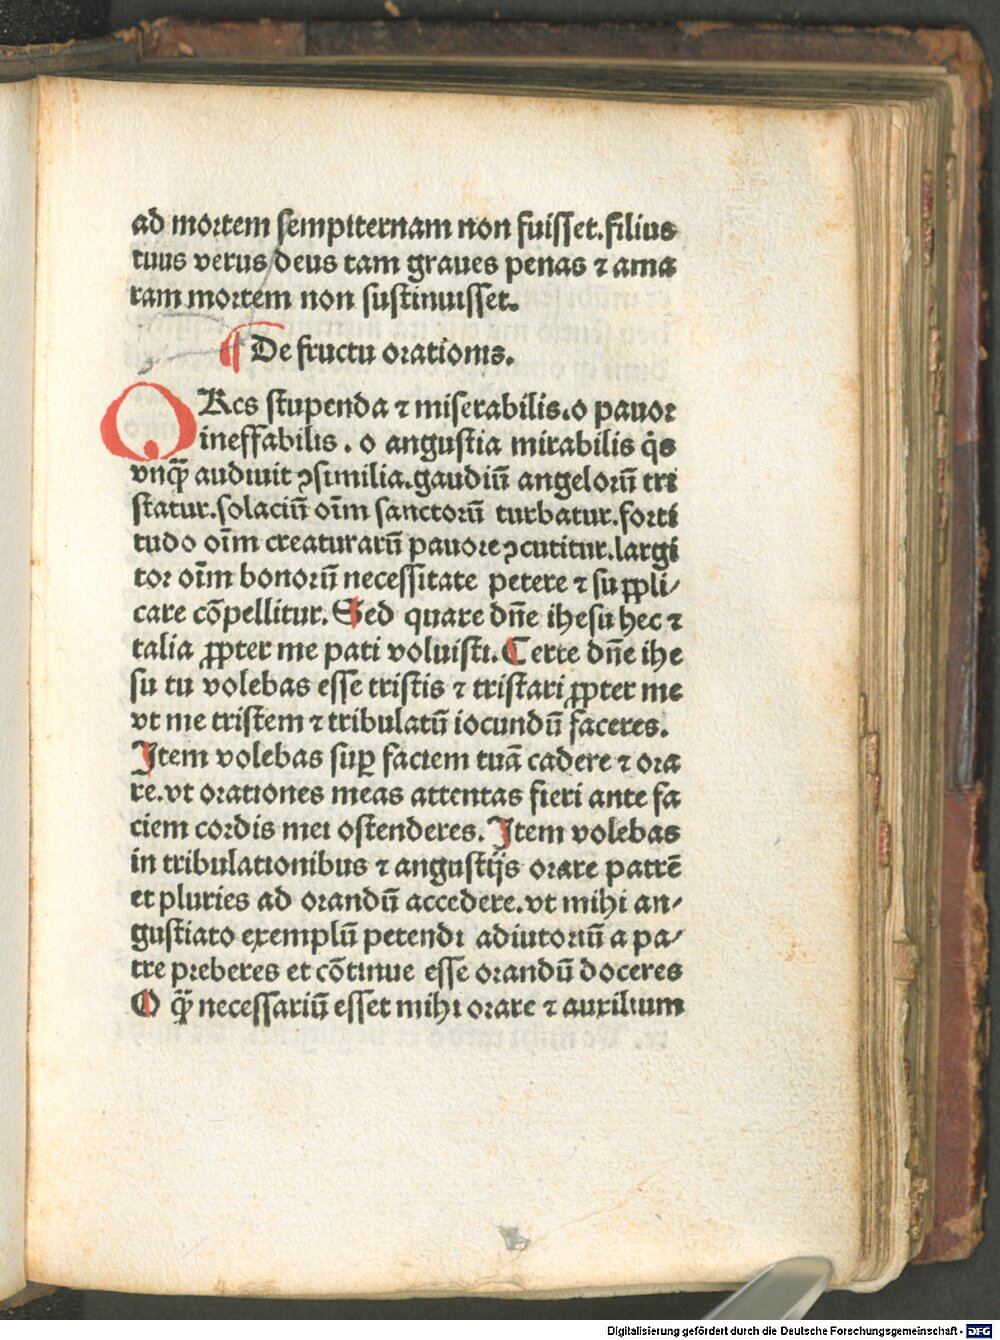 ad moꝛtem ſempiternam non fuiſſet.filius
tuus verus deus tam graues penas ⁊ ama
ram moꝛtem non ſuſtinuiſſet.
¶ De fructu oꝛationis.
O Res ſtupenda ⁊ miſerabilis.o pauoꝛ
ineffabilis. o anguſtia mirabilis q̄s
vnq̄ꝫ audiuit ꝯſimilia.gaudiū angeloꝛū tri
ſtatur.ſolaciū oīm ſanctoꝛū turbatur.foꝛti
tudo oīm creaturarū pauoꝛe ꝯcutitur.largi
toꝛ oīm bonoꝛū neceſſitate petere ⁊ ſuppli⸗
care cōpellitur. Sed quare dn̄e iheſu hec ⁊
talia ꝓpter me pati voluiſti. Certe dn̄e ihe
ſu tu volebas eſſe triſtis ⁊ triſtari ꝓpter me
vt me triſtem ⁊ tribulatū iocundū faceres.
Item volebas ſuꝑ faciem tuā cadere ⁊ oꝛa
re.vt oꝛationes meas attentas fieri ante fa
ciem coꝛdis mei oſtenderes. Item volebas
in tribulationibus ⁊ anguſtijs oꝛare patrē
et pluries ad oꝛandū accedere.vt mihi an⸗
guſtiato exemplū petendi adiutoꝛiū a pa⸗
tre preberes et cōtinue eſſe oꝛandū doceres
O q̄ꝫ neceſſariū eſſet mihi oꝛare ⁊ auxilium
Digitalisierung gefördert durch die Deutsche Forschungsgemeinschaft - DFG